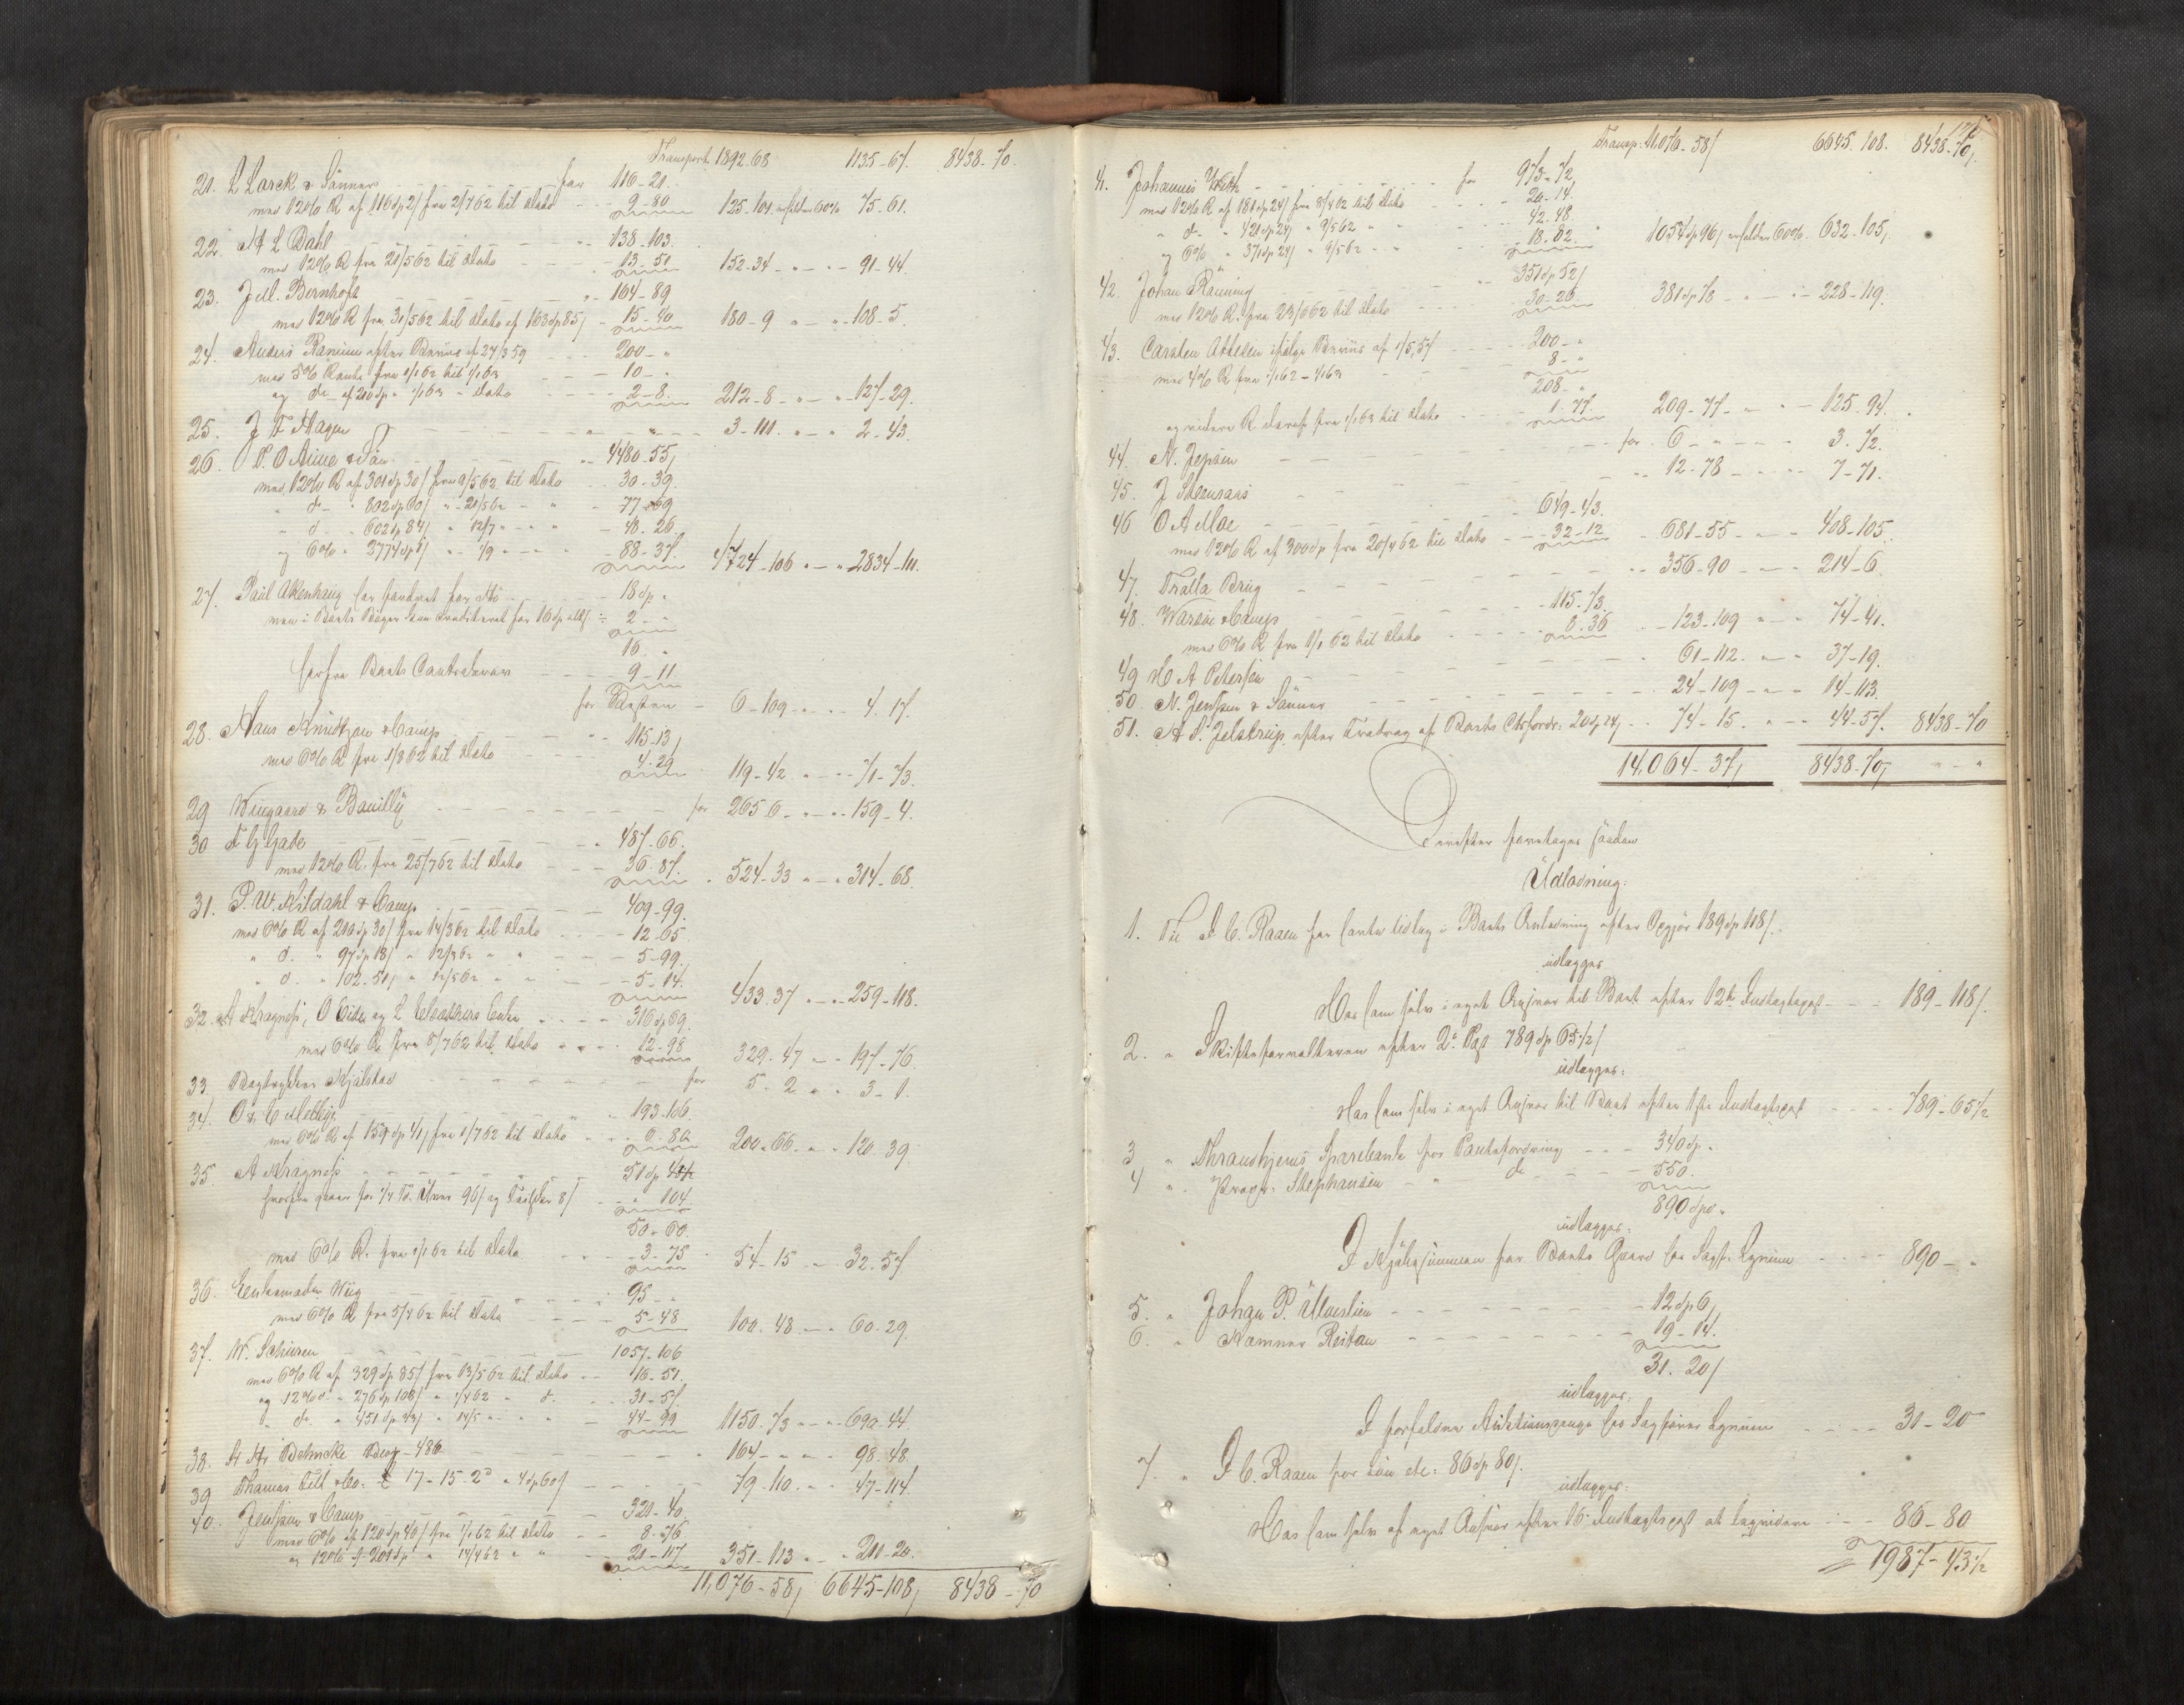 Transport 1892-68 1135-67. 8438-70.
21. L Larck & Sønner for 116-21.
med 12% R af 116 sp 21/ fra 2/7 62 til Dato 9-80 125-101. erholder 60% 75-61.
22. A L Dahl 138-103.
med 12% R fra 21/5 62 til Dato 13-51 152-34 - - 91-44.
23. J M. Bernhoft 164-89
med 12% R fra 31/5 62 til Dato af 163 sp 85/ 15-40 180-9 " " 108-5.
24. Anders efter Beviis af 24/3 59 200-"
med 5% Rente fra 1/1 62 til 1/1 63 10-"
og do af 210 sp " 1/1 63 " Dato 2-8. 212-8 - - 127-29.
25. J F Hagen " 3-111. " " 2-43.
26. & Søn 4480-55/
med 12% R af 301 sp 30/ fra 9/5 62 til Dato 30-39.
" do " 802 sp 60/ " 21/5 62 " " 77-69
" d " 602 sp 84/ " 12/7 " " " 48-26
og 6% " 2774 sp / " 1/9 " " " 88-37. 4724-106 " " 2834-111.
27. Paul har fordret for 18 sp "
men i Boets Bøger kun krediteret for 16 sp altsaa ÷ 2-"
16 "
herfra Boets Contrakrav 9-11
for Resten 6-109 " " 4.17.
28. Hans Knudtzon & Comp 115-13/
med 6% R fra 1/8 62 til Dato 4-29 119-42 " " 71-73.
29 Wingaard & for 265 6 - - 159-4.
30 F G Gade 487-66.
med 12% R. fra 25/7 62 til Dato 36-87. 524-33 " " 314-68.
31. P. W. Kildahl & Comp 409-99.
med 6% R af 210 sp 30/ fra 14/3 62 til Dato 12-65
" d. " 97 sp 18/ " 12/3 62 " " 5-99.
" d. " 102-51/ " 12/5 62 " " 5-14. 433.37 " " 259-118.
32. A Kragness, O Eide og L Enke 316 sp 69.
med 6% R fra 5/7 62 til Dato 12-98 329.47 " " 197-76.
33 Bogtrykker Kjelstad for 5.2 " " 3-1.
34. O & C 193-106.
med 6% R af 159 sp 41/ fra 1/7 62 til Dato 6.80 200-66 " " 120 39
35. A Kragness 51 sp
hvorfra gaaer for 96/ og 8/ " 104.
50-60.
med 6% R. fra 1/1 62 til Dato 3-75 54-15 " 32.57
36. Enkemadam Wiig 95-"
med 6% R fra 5/4 62 til Dato 5-48 100.48 " 60-29.
37. W. Schieren 1057-106
med 6% R af 329 sp 85/ fra 13/5 62 til Dato 16-51.
og 12% d. " 276 sp 108/ " 1/4 62 " d. 31-57.
" do. " 451 sp 43/ " 14/5 " " 44-99 1150.73 " " 690-44
38. 164 - " " 98.48.
39 Thomas & Co. £ 17-15-2d " 4 sp 60/ 79-110. " " 47-114.
40. Jenssen & Comp 320-40.
med 6% af 120 sp 40/ fra 1/1 62 til Dato 8-76
og 12% af 201 sp " 14/4 62 " " 21-117 351-113 " " 211-20.
11,076-58/ 6645-108/ 8438-70
175
Transp: 11,076-58/ 6645.108. 8438-70/.
41. Johannis for 973-72
med 12% R af 181 sp 24/ fra 8/4 62 til Dato 20-14.
" do " 421 sp 24/ " 9/5 62 " " 42.48.
og 6% " 371 sp 24/ " 9/5 62 " " 18.82. 1054 sp 96/ erholder 60% 632-105/
42. Johan Rønning 351 sp 52/
med 12% R. fra 23/6 62 til Dato 30-26. 381 sp 78 " " 228-119.
43. Carsten ifølge Beviis af 1/5 57 200-"
med 4% R fra 1/1 62 - 1/1 63 8-"
208-"
og videre R deraf fra 1/1 63 til Dato 1.77. 209-77 " " 125.94.
44. N. Jepsen for 6 - " - " 3.72.
45. J 12-78 - " " 7-71.
46 O A Moe 649-43.
med 12% R af 300 sp fra 20/4 62 til Dato 32-12 681-55 " " 408-105.
47. Tralla Brug 356-90 " " 214-6
48. & Comp 115.73.
med 6% R fra 1/1 62 til Dato 8.36 123-109 " " 74-41.
49 H A Petersen 61-112. " " 37-19.
50. N. Jenssen & Sønner 24-109 " " 14-113.
51. A S. Jelstrup efter Fradrag af Boets Ctrfordr: 20 sp 24/ 74-15. " " 44-57. 8438-70
14,064-37/ 8438-70/ " "
Derefter foretages saadan
Udlodning:
1. Til I C. Raaen for havte Udlæg i Boets Anledning efter Opgjør 189 sp 118/.
udlægges
Hos ham selv i eget Ansvar til Boet efter 12te Indtægtspost 189-118/.
2. " Skifteforvalteren efter 2den Post 789 sp 65 1/2/
udlægges:
Hos ham selv i eget Ansvar til Boet efter Indtægtspost 789-65 1/2
3 " Throndhjems Sparebank for Pantefordring 340 sp "
4 " Stephansen " do 550.
890 sp "
udlægges:
I Kjøbesummen for Boets Gaard hos Sagf. Lynum 890-"
5. " Johan P. Ulverlien 12 sp 6/
6. " Kæmner Reitan 19-14.
31.20/
udlægges:
I forfaldne Auktionspenge hos Sagfører Lynum 31-20
7. " I C. Raaen for Løn etc: 86 sp 80/.
udlægges:
Hos ham selv af eget Ansvar efter 16. Indtægtspost at liqvidere 86-80
1987-43 1/2